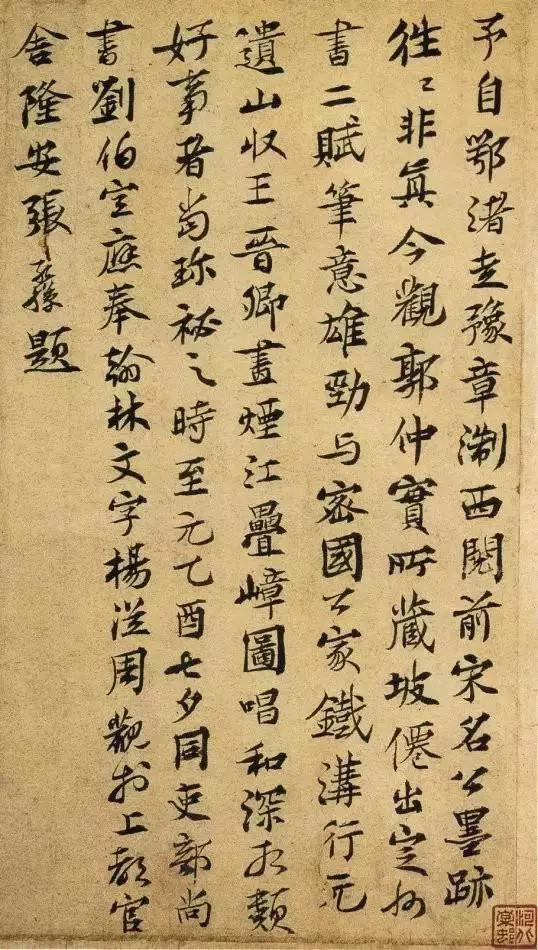 予自鄂渚走豫章淛西閱前宋名公墨跡
往〻非真今觀郭仲實所藏坡僊出定州
書二賦筆意雄勁与密國公家鐵溝行元
遺山收王晉卿畫煙江疊嶂圖唱和深相類
好事者尚珎祕之時至元乙酉七夕同吏部尚
書劉伯宣應奉翰林文字楊從周觀於上都官
舍隆安張孫題